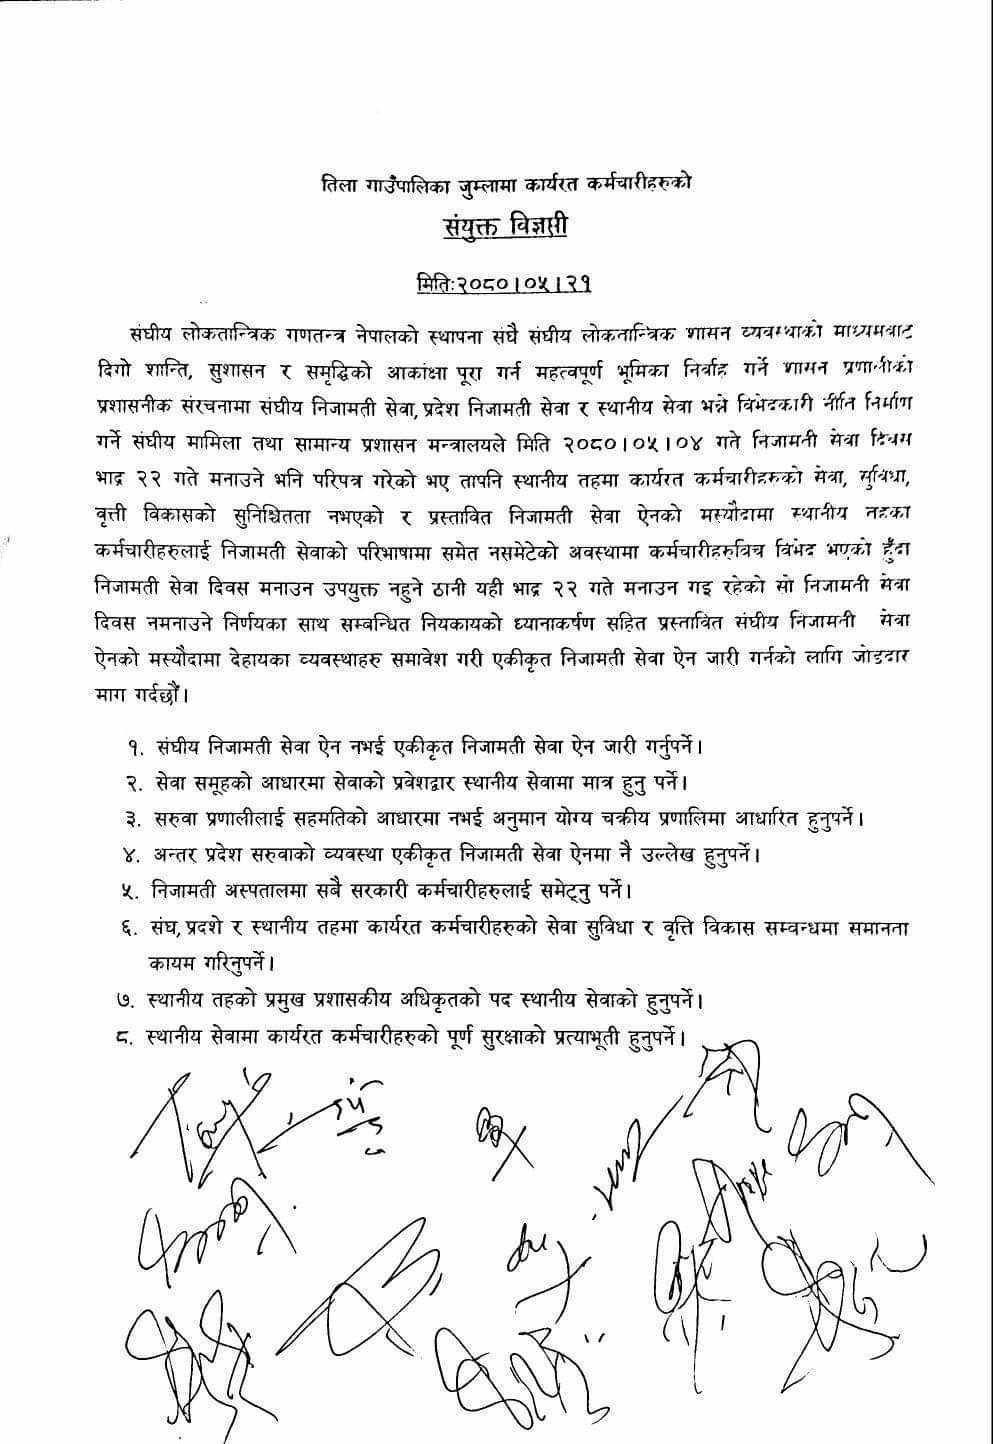 तिला गाउँपालिका जुम्लामा कार्यरत कर्मचारीहरुको
संयुक्त विज्ञप्ती
मितिः२०८०।०५।२१
संघीय लोकतान्त्रिक गणतन्त्र नेपालको स्थापना संघै संघीय लोकतान्त्रिक शासन व्यवस्थाको माध्यमबाट
दिगो शान्ति, सुशासन र समृद्धिको आकांक्षा पूरा गर्न महत्वपूर्ण भूमिका निर्वाह गर्ने शासन प्रणालीको
प्रशासनीक संरचनामा संघीय निजामती सेवा, प्रदेश निजामती सेवा र स्थानीय सेवा भन्ने विभेदकारी नीति निर्माण
गर्ने संघीय मामिला तथा सामान्य प्रशासन मन्त्रालयले मिति २०८०।०५।०४ गते निजामती सेवा दिवस
भाद्र २२ गते मनाउने भनि परिपत्र गरेको भए तापनि स्थानीय तहमा कार्यरत कर्मचारीहरुको सेवा, सुविधा,
वृत्ती विकासको सुनिश्चितता नभएको र प्रस्तावित निजामती सेवा ऐनको मस्यौदामा स्थानीय तहका
कर्मचारीहरुलाई निजामती सेवाको परिभाषामा समेत नसमेटेको अवस्थामा कर्मचारीहरुविच विभेद भएको हुँदा
निजामती सेवा दिवस मनाउन उपयुक्त नहुने ठानी यही भाद्र २२ गते मनाउन गइ रहेको सो निजामती सेवा
दिवस नमनाउने निर्णयका साथ सम्बन्धित नियकायको ध्यानाकर्षण सहित प्रस्तावित संघीय निजामती सेवा
ऐनको मस्यौदामा देहायका व्यवस्थाहरु समावेश गरी एकीकृत निजामती सेवा ऐन जारी गर्नको लागि जोडदार
माग गर्दछौं।
१. संघीय निजामती सेवा ऐन नभई एकीकृत निजामती सेवा ऐन जारी गर्नुपर्ने।
२. सेवा समूहको आधारमा सेवाको प्रवेशद्वार स्थानीय सेवामा मात्र हुनु पर्ने।
३. सरुवा प्रणालीलाई सहमतिको आधारमा नभई अनुमान योग्य चक्रीय प्रणालिमा आधारित हुनुपर्ने।
४. अन्तर प्रदेश सरुवाको व्यवस्था एकीकृत निजामती सेवा ऐनमा नै उल्लेख हुनुपर्ने।
५. निजामती अस्पतालमा सबै सरकारी कर्मचारीहरुलाई समेट्नु पर्ने।
६. संघ, प्रदशे र स्थानीय तहमा कार्यरत कर्मचारीहरुको सेवा सुविधा र वृत्ति विकास सम्वन्धमा समानता
कायम गरिनुपर्ने।
७. स्थानीय तहको प्रमुख प्रशासकीय अधिकृतको पद स्थानीय सेवाको हुनुपर्ने।
८. स्थानीय सेवामा कार्यरत कर्मचारीहरुको पूर्ण सुरक्षाको प्रत्याभूती हुनुपर्ने।